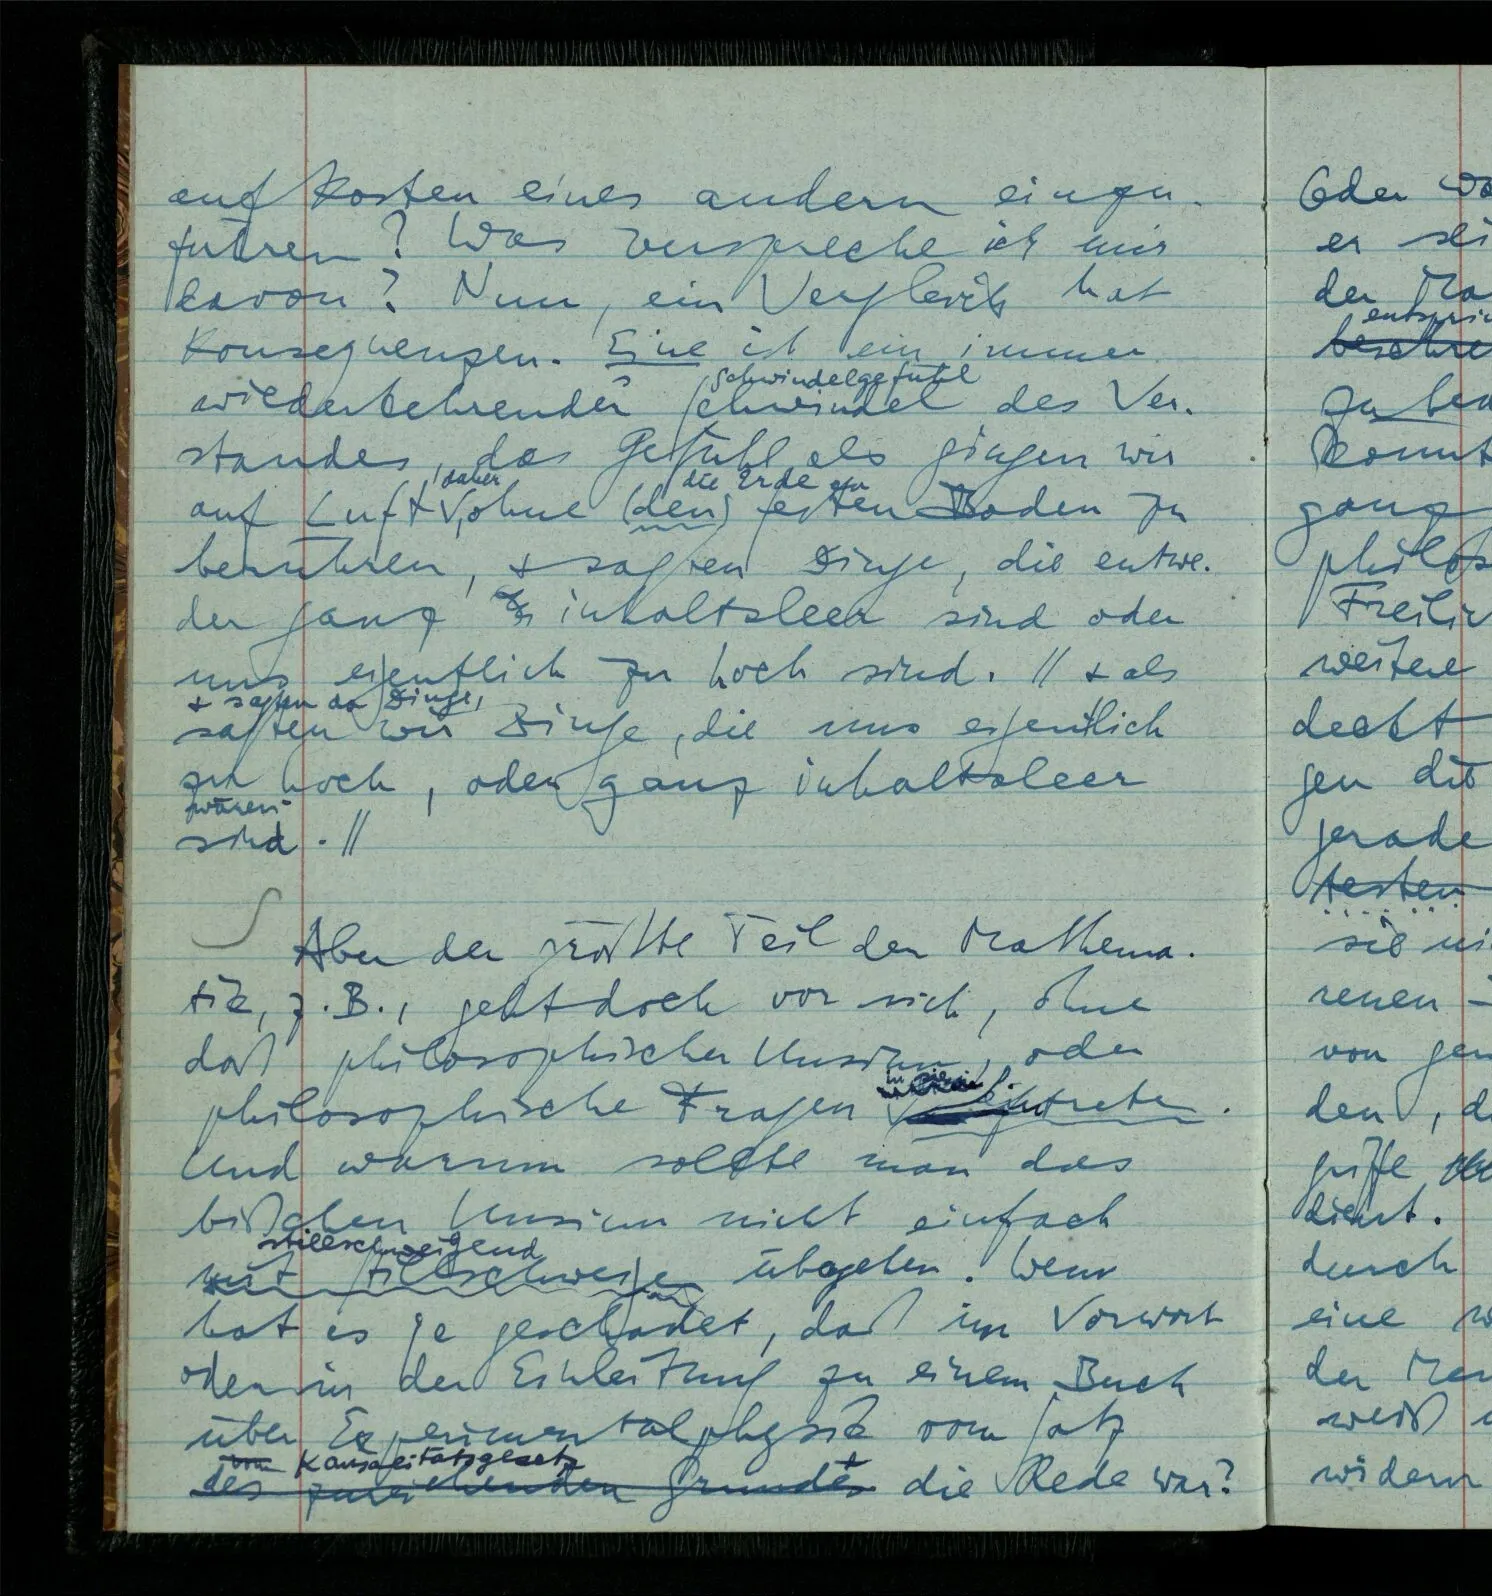 auf Kosten eines andern einzu-
führen? Was verspreche ich mir
davon? Nun, ein Vergleich hat
Konsequenzen. Eine ist ein immer
Schwindelgefühl
wiederkehrender Schwindel des Ver-
standes, das Gefühl als gingen wir
daher die Erde zu
auf Luft, ohne (den) festen Boden zu
berühren, & sagten Dinge, die entwe-
der ganz inhaltsleer sind oder
uns eigentlich zu hoch sind. // & als
& sagen da Dinge,
sagten wir Dinge, die uns eigentlich
zu hoch, oder ganz inhaltsleer
wären.
sind. //
Aber der größte Teil der Mathema-
tik, z.B., geht doch vor sich, ohne
daß philosophischer Unsinn, oder
in sie
philosophische Fragen eintreten.
Und warum sollte man das
bißchen Unsinn nicht einfach
stillschweigend
mit Stillschweigen übergehen. Wem
hat es je geschadet, daß im Vorwort
oder in der Einleitung zu einem Buch
über Experimentalphysik vom Satz
vom Kausalitätsgesetz
des zureichenden Grundes die Rede war?
Oder
er
der
zu
ganz
weitere
deckt
gen die
gerade
testen
sie
renen
von
den,
griffe
dient.
durch
eine
der
weiß